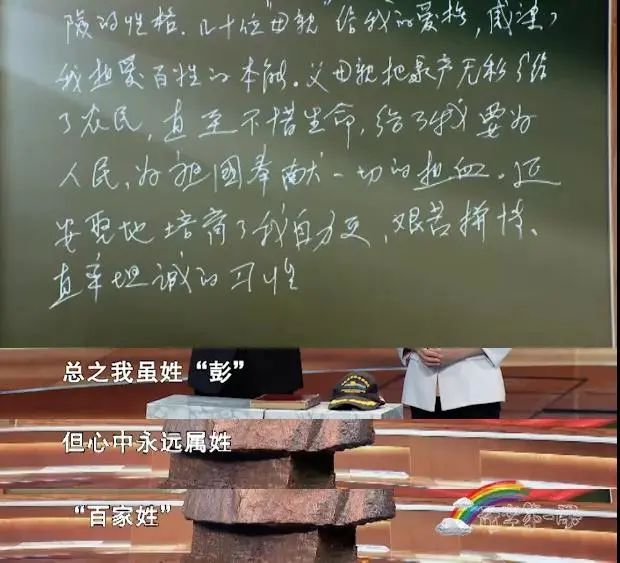 险的性格.几十位"母亲"给我的爱抚,感染了
我热爱百姓的本能。父母亲把家产无私分给
了农民,直至不惜生命,给了我要为
人民,为祖國奉献一切的热血。延
安圣地培育了我自力更,艰苦拼搏、
直率坦诚的习性
总之我虽姓“彭”
但心中永远属姓
“百家姓”
开学第一课